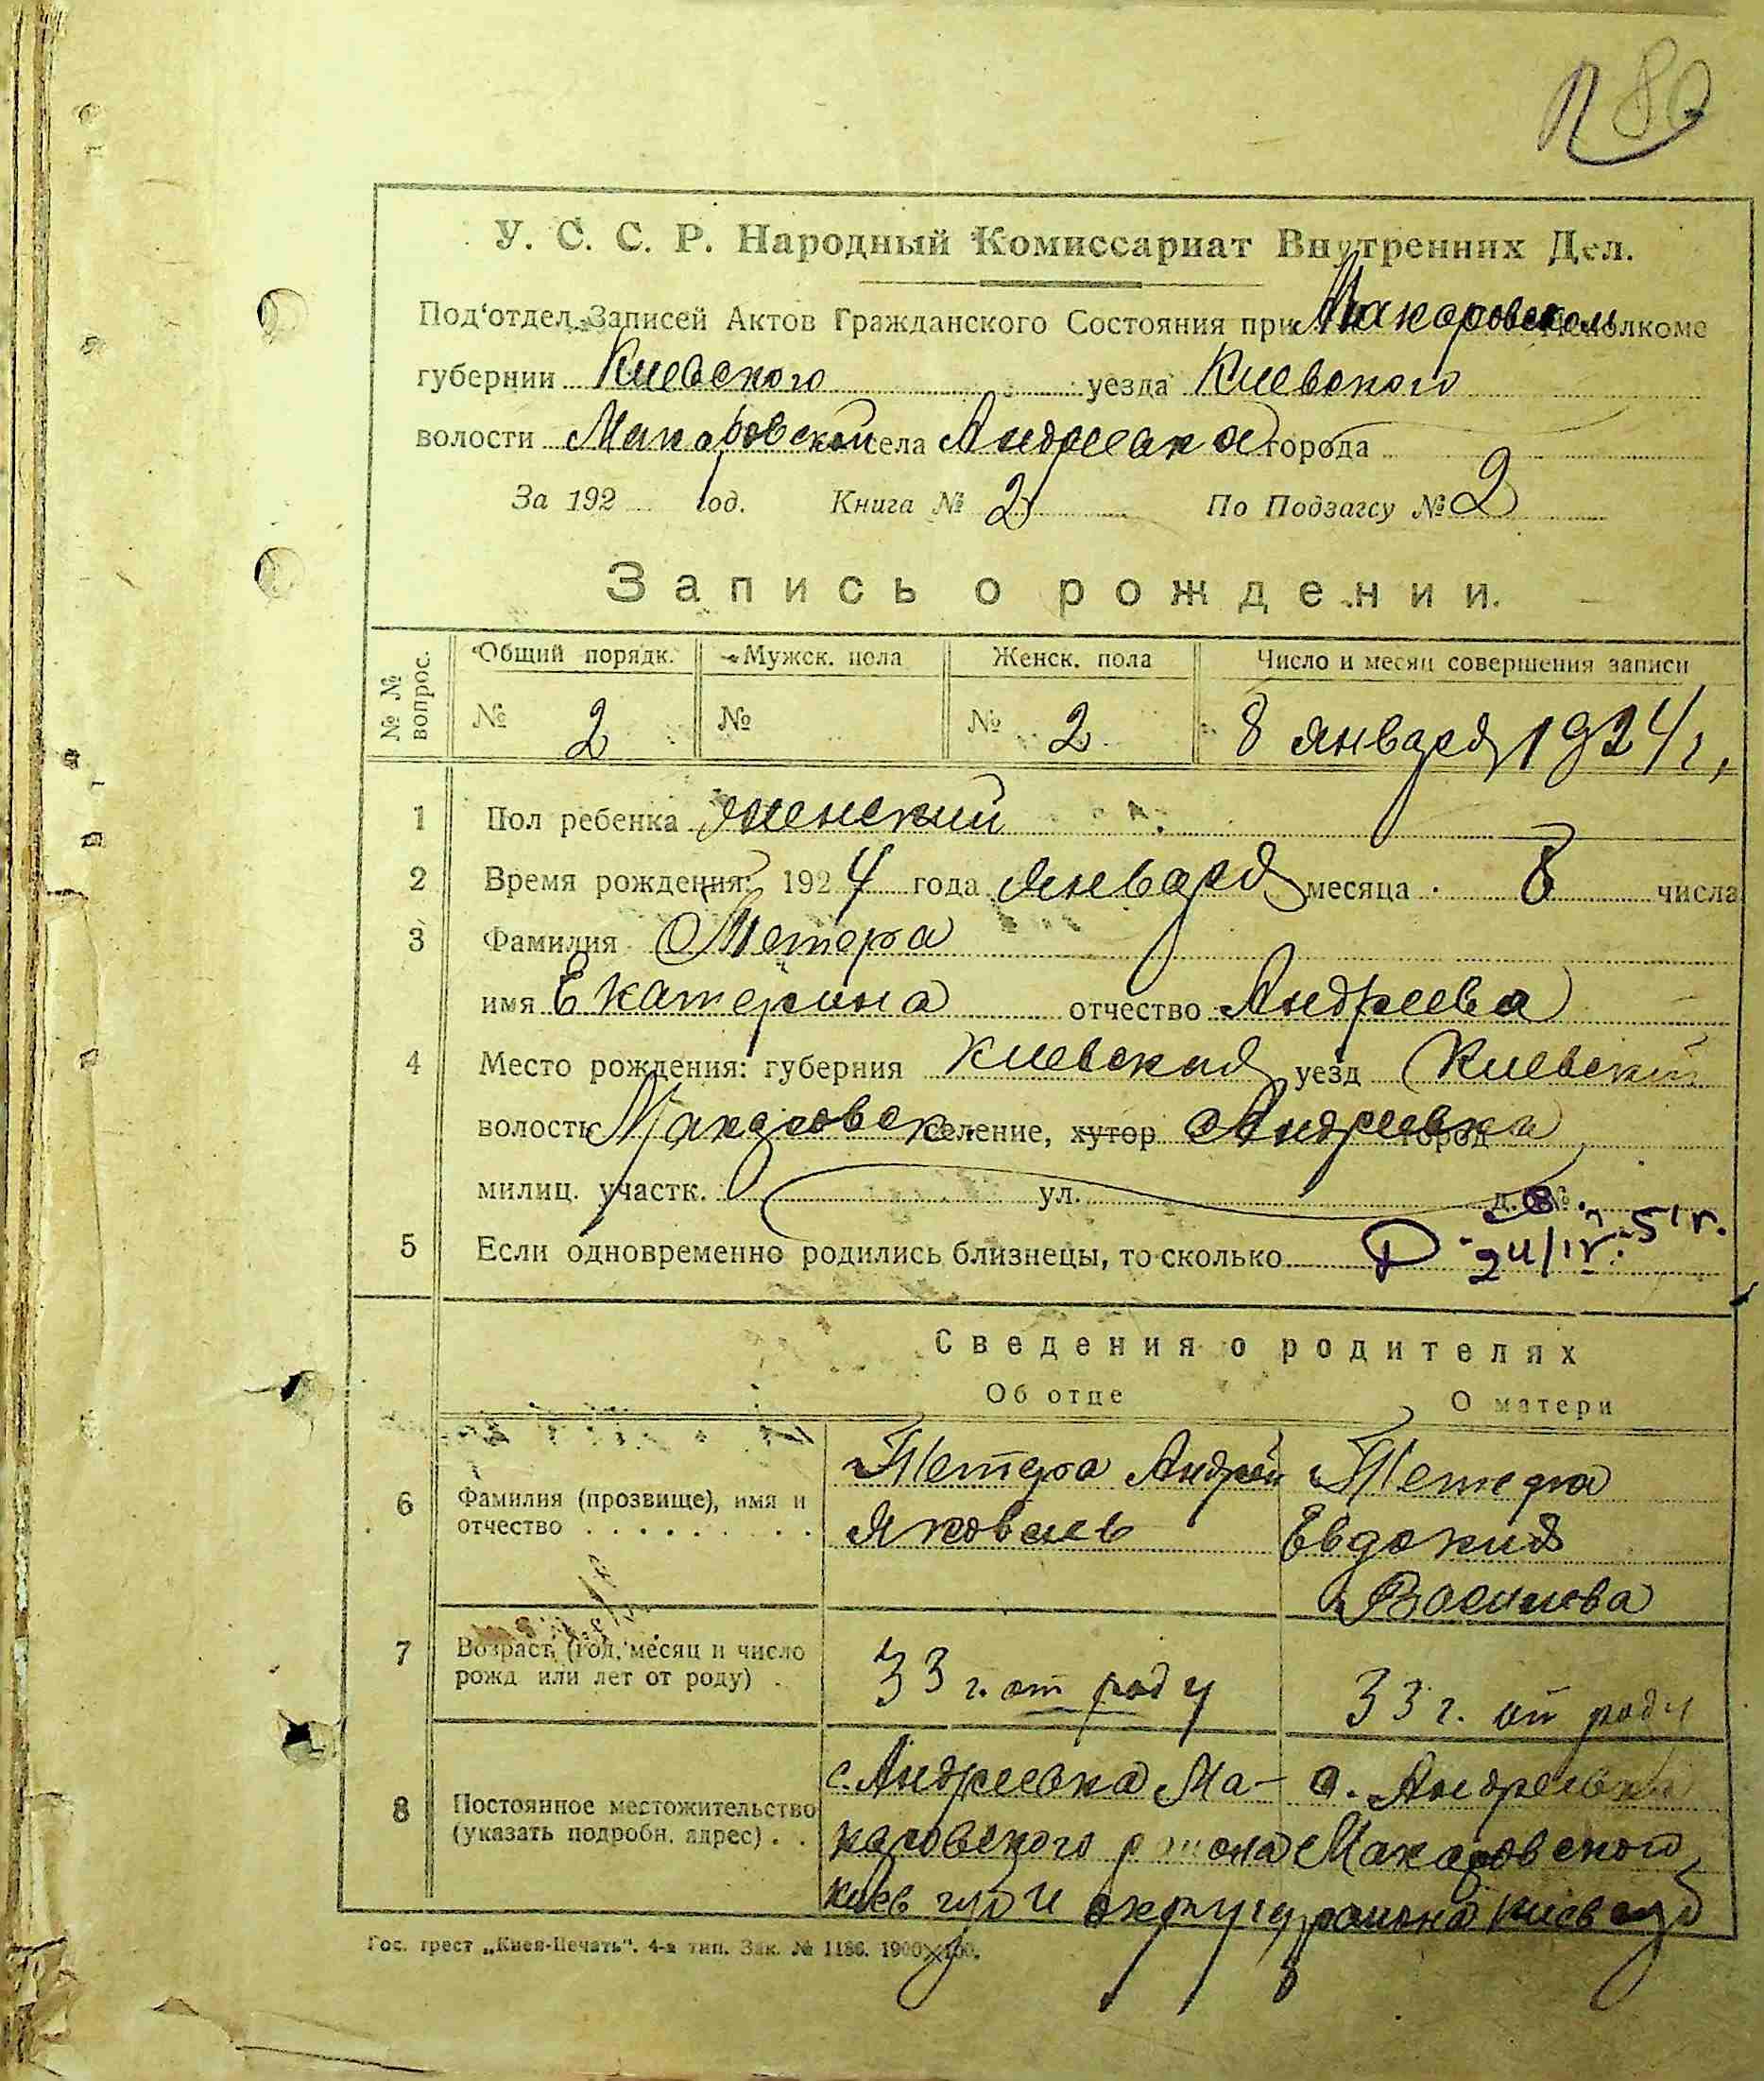 80
У. С. С. Р. Народный Комиссариат Внутренних Дел.
Под'отдел Записей Актов Гражданского Состояния при Макаровском Исполкоме
губернии Киевского уезда Киевского
волости Макаровской села Андреевка города
За 192 год. Книга № 2 По Подзагсу № 2
Запись о рождении.
№ № вопрос. Общий порядк. Мужск. пола Женск. пола Число и месяц совершения записи
№ 2 № № 2 8 января 1924 г.
1 Пол ребенка женский
2 Время рождения: 1924 года января месяца 8 числа
3 Фамилия Тетера
имя Екатерина отчество Андреева
4 Место рождения: губерния Киевская уезд Киевский
волость Макаровск. селение, хутор Андреевка город
милиц. участк. ул. д. №
5 Если одновременно родились близнецы, то сколько
Сведения о родителях
Об отце О матери
6 Фамилия (прозвище), имя и отчество
Тетера Андрей
Яковлев
Тетера
Евдокия
7 Возраст (год, месяц и число рожд или лет от роду)
33 г. от роду
33 г. от роду
8 Постоянное местожительство (указать подробн. адрес)
с. Андреевка Ма-
каровского района
Киев губ и округу
с. Андреевка
Макаровского
района Киев губ
Гос. трест „Киев-Печать“. 4-я тип. Зак. № 1186. 1900×100.